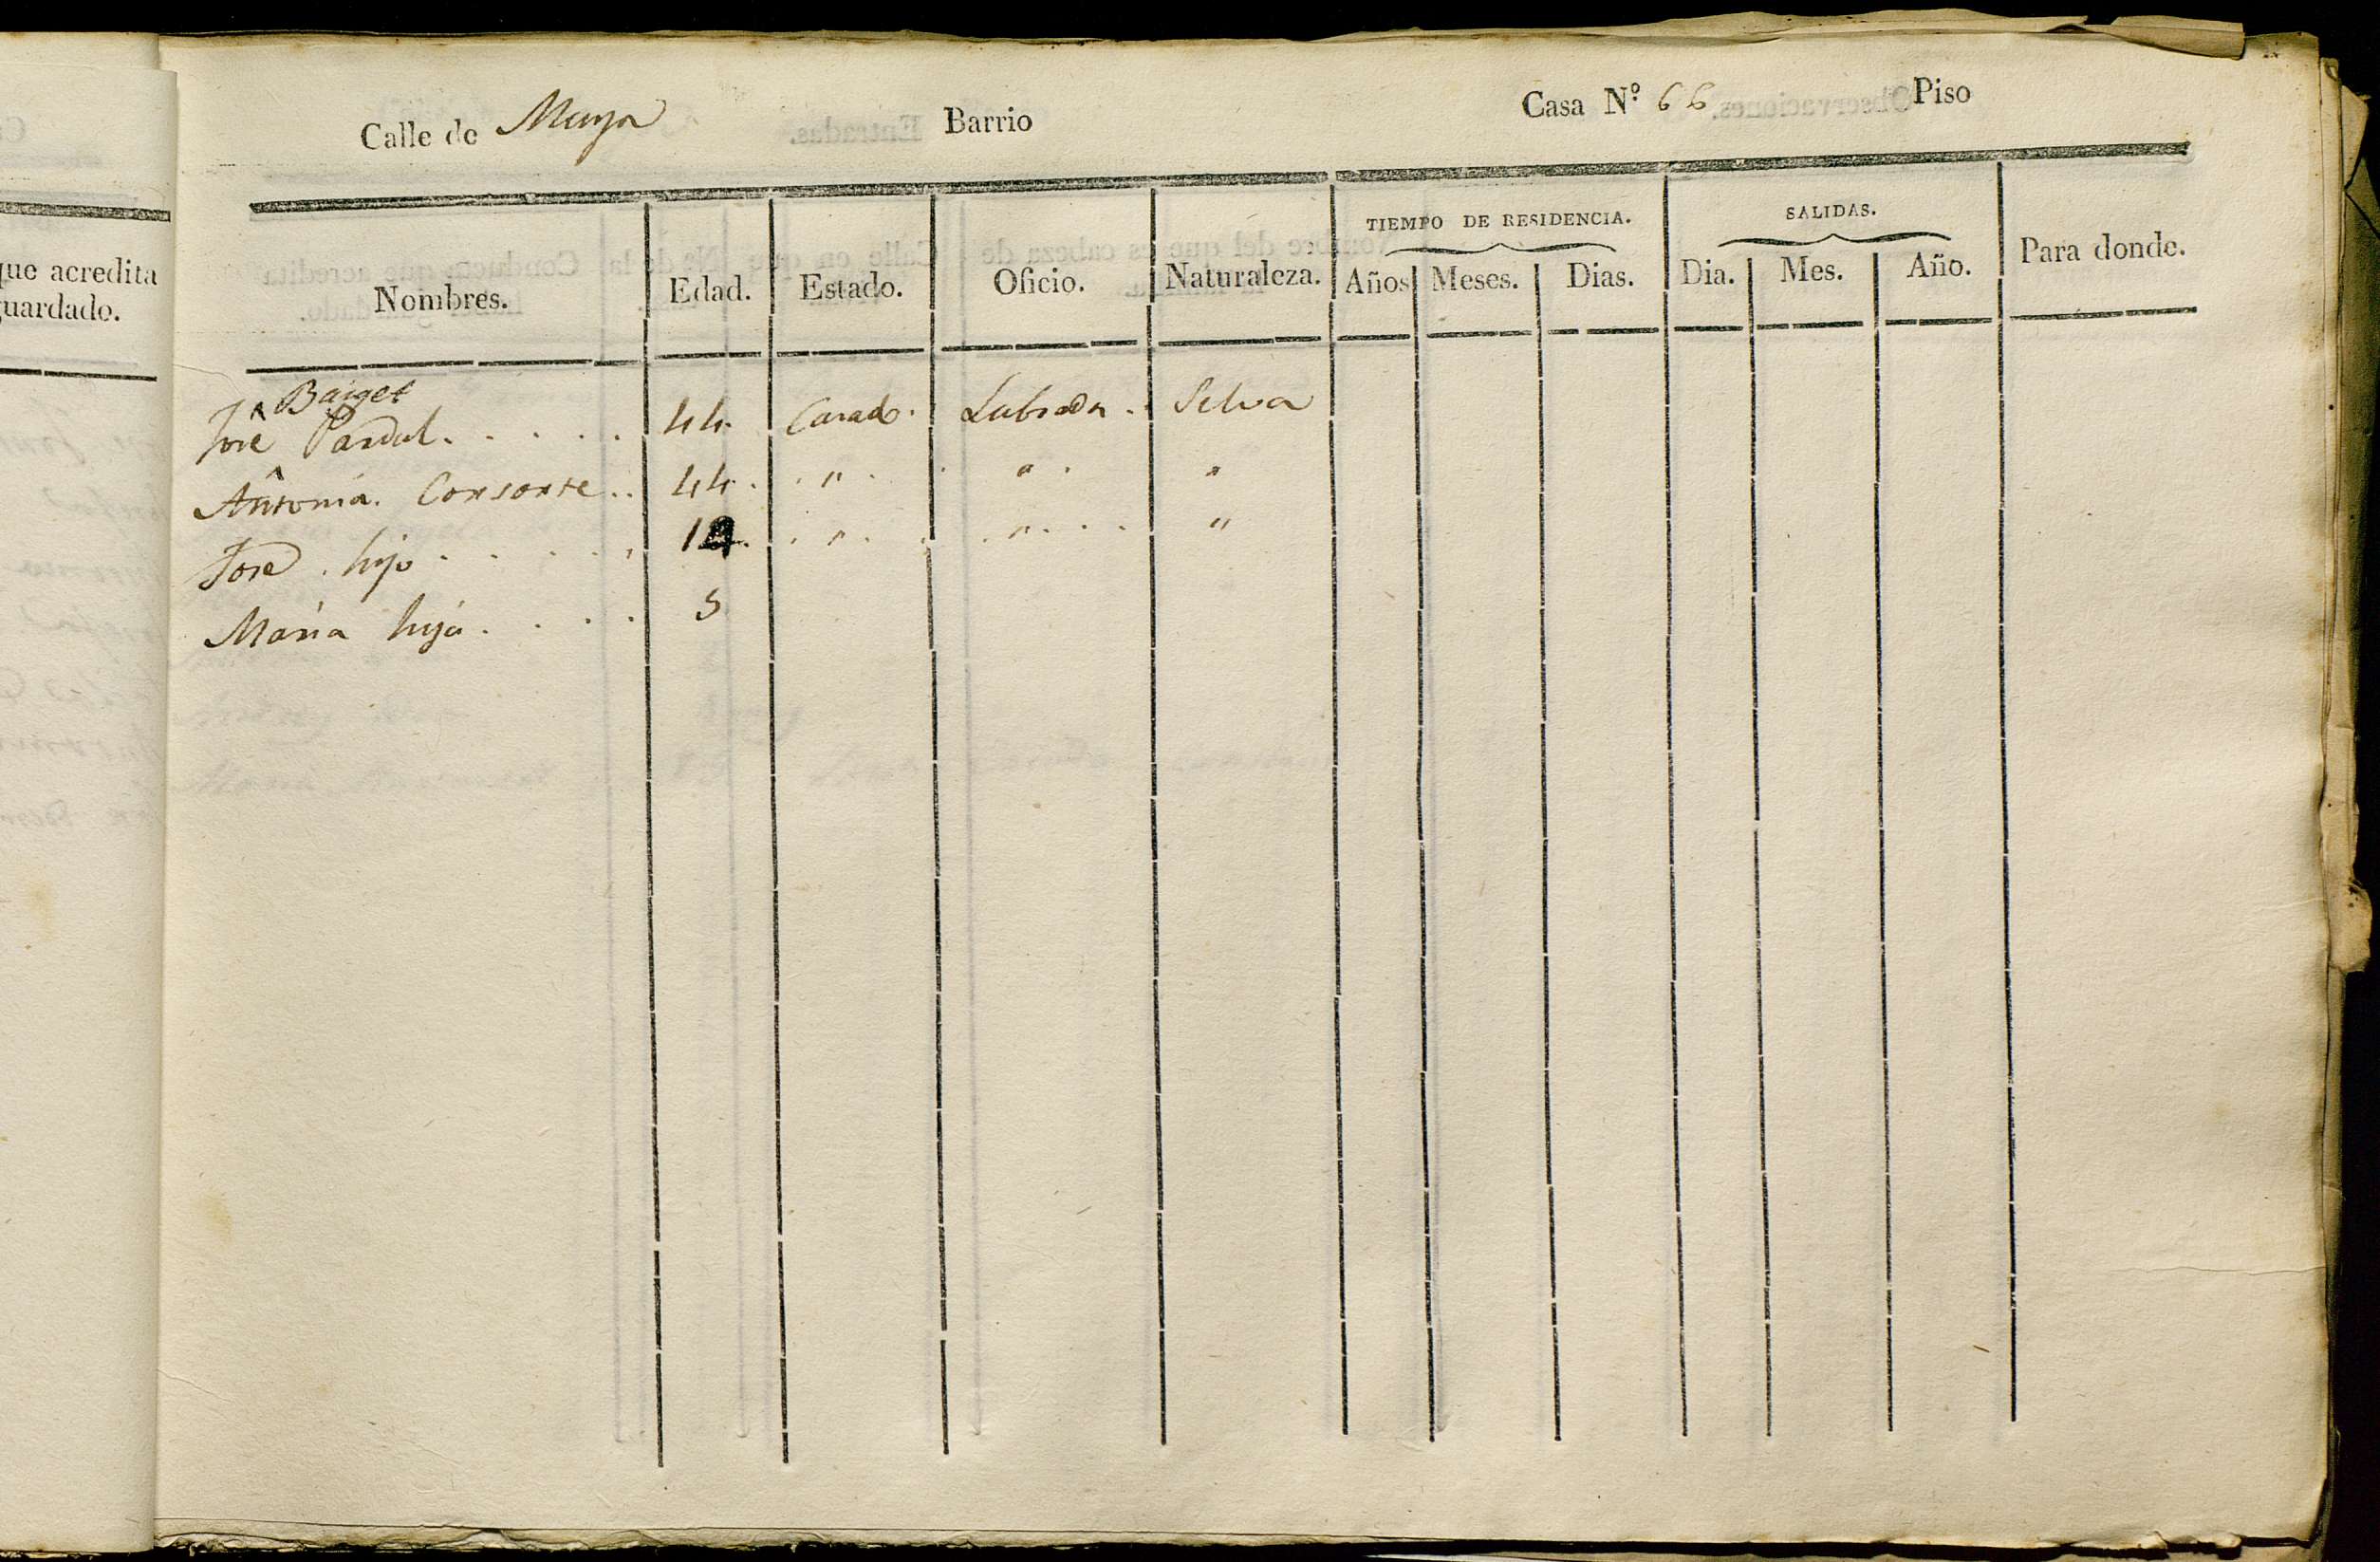 Calle de Maya Barrio Casa N.º 66 Piso
que acredita
guardado.
TIEMPO DE RESIDENCIA. SALIDAS.
Nombres. Edad. Estado. Oficio. Naturaleza. Años Meses. Dias. Dia. Mes. Año. Para donde.
Baiget
José 44. Casado. Labrador.. Selva
Antonia. Consorte.. 44. " " "
Jose. hijo 14. " " "
Maria hija. 5